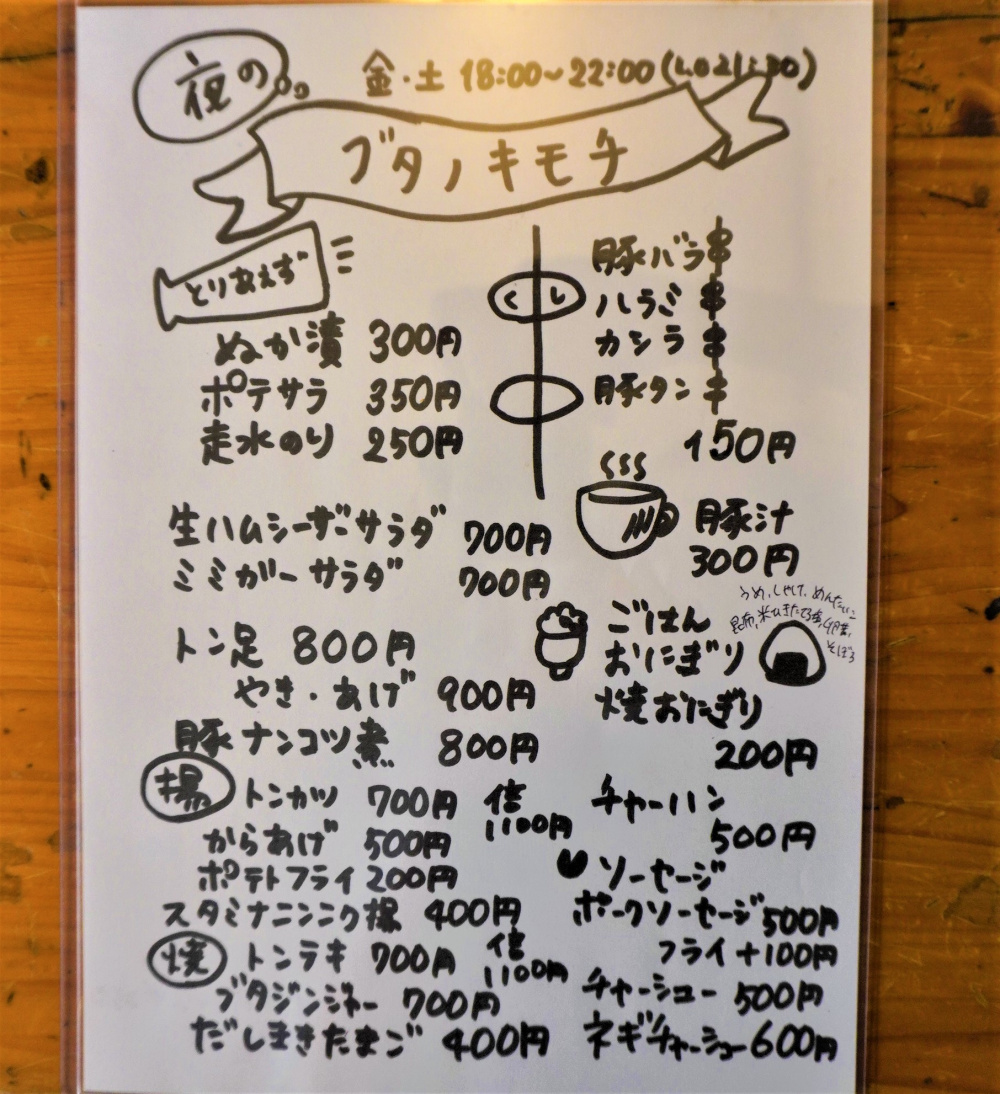 夜の
金・土 18:00~22:00(LO21:30)
ブタノキモチ
とりあえず
ぬか漬 300円
ポテサラ 350円
走水のり 250円
くし
豚バラ串
ハラミ串
カシラ串
豚タン串
150円
生ハムシーザーサラダ 700円
ミミガーサラダ 700円
豚汁
300円
トン足 800円
やき・あげ 900円
豚ナンコツ煮 800円
ごはん
おにぎり
うめ、しゃけ、めんたいこ
昆布、
そぼろ
焼おにぎり
200円
揚
トンカツ 700円 倍
1100円
からあげ 500円
ポテトフライ 200円
スタミナニンニク揚 400円
焼
トンテキ 700円 倍
1100円
ブタジンジャー 700円
だしまきたまご 400円
チャーハン
500円
ソーセージ
ポークソーセージ 500円
フライ+100円
チャーシュー 500円
ネギチャーシュー 600円